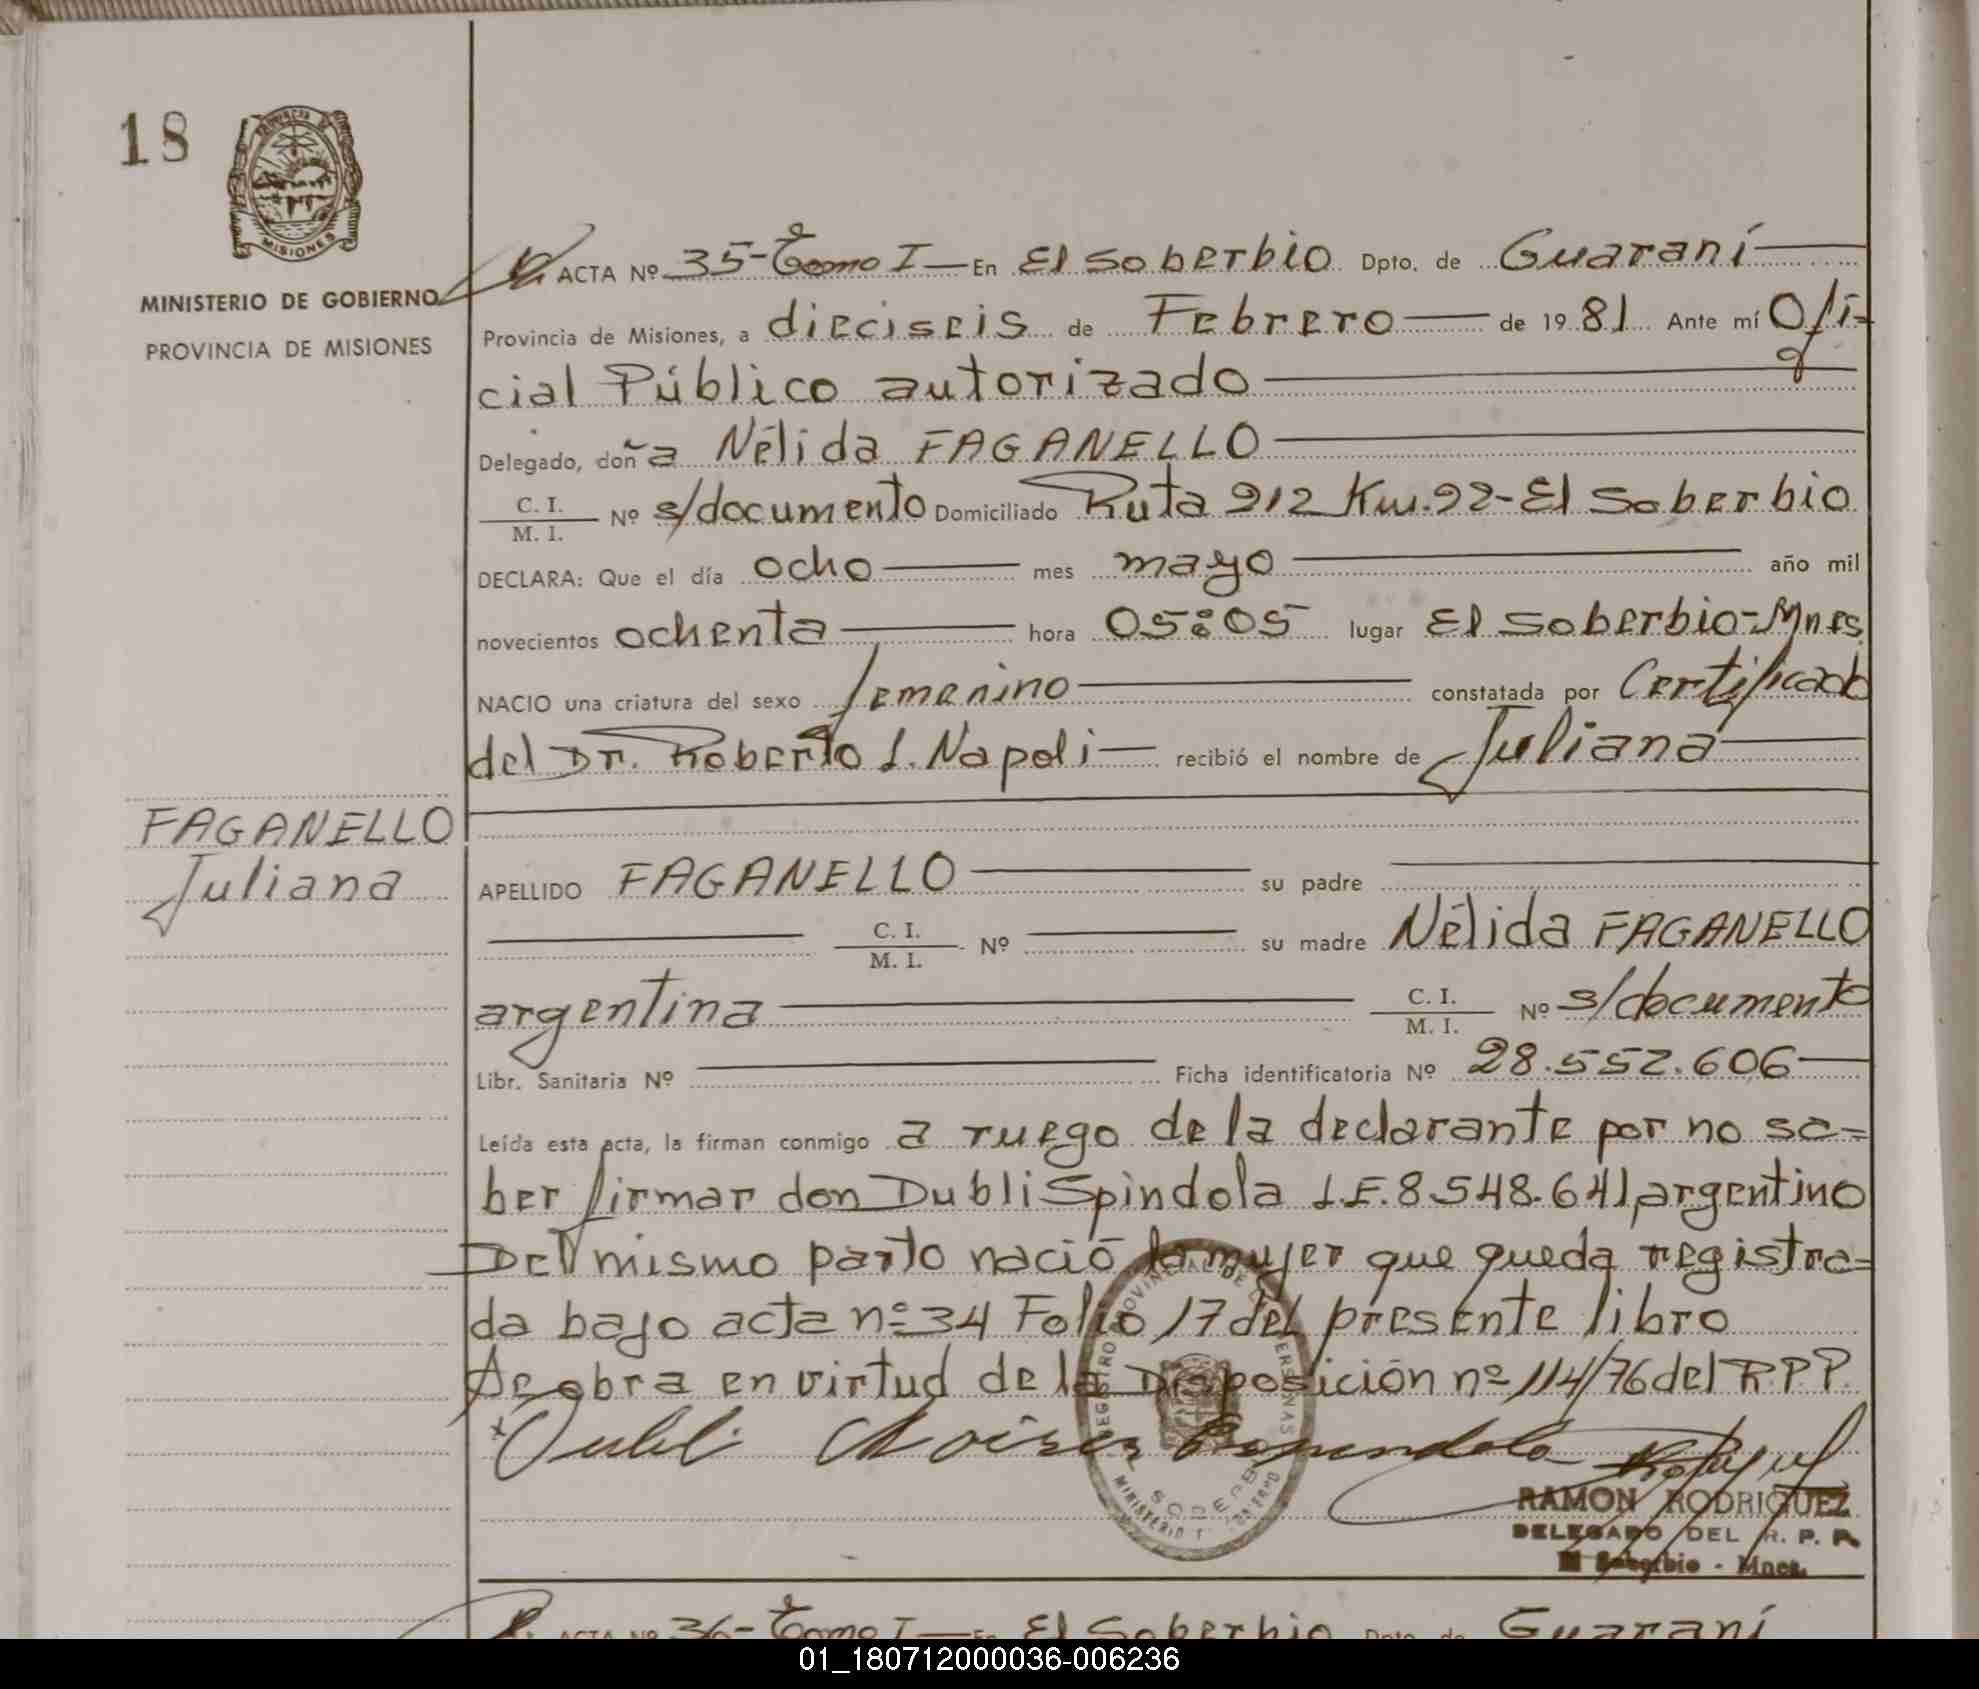 18
PROVINCIA DE
MISIONES
MINISTERIO DE GOBIERNO
PROVINCIA DE MISIONES
ACTA Nº 35-Tomo I — En El Soberbio Dpto. de Guaraní
Provincia de Misiones, a dieciseis de Febrero de 1981 Ante mí Ofi=
cial Público autorizado
Delegado, doña Nélida FAGANELLO
C. I. / M. I. Nº s/documento Domiciliado Ruta 212 Km.92-El Soberbio
DECLARA: Que el día ocho mes mayo año mil
novecientos ochenta hora 05:05 lugar El Soberbio-Mnes
NACIO una criatura del sexo femenino constatada por Certificado
del Dr. Roberto L. Napoli recibió el nombre de Juliana
FAGANELLO
Juliana
APELLIDO FAGANELLO su padre
C. I. / M. I. Nº su madre Nélida FAGANELLO
argentina C. I. / M. I. Nº s/documento
Libr. Sanitaria Nº Ficha identificatoria Nº 28.552.606
Leída esta acta, la firman conmigo a ruego de la declarante por no sa=
ber firmar don Dubli Spindola L.E. 8.548.641 argentino
Del mismo parto nació la mujer que queda registra=
da bajo acta nº 34 Folio 17 del presente libro
Se obra en virtud de la Disposición nº 114/76 del R.P.P.
REGISTRO PROVINCIAL DE LAS PERSONAS
MINISTERIO DE GOBIERNO
RAMON RODRIGUEZ
DELEGADO DEL R. P. P.
El Soberbio - Mnes.
ACTA Nº 36-Tomo I — En El Soberbio Dpto. de Guaraní
01_180712000036-006236